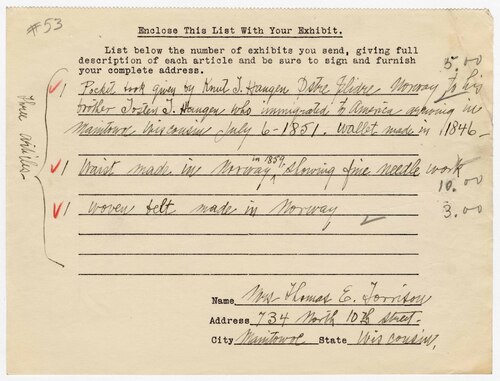 #53
Enclose This List With Your Exhibit.
List below the number of exhibits you send, giving full
description of each article and be sure to sign and furnish
your complete address.
5.00
1 Pocket book given by Knut T. Haugen Østre Slidre Norway to his
brother Tosten T. Haugen who immigrated to America arriving in
Manitowoc Wisconsin July 6-1851. Wallet made in 1846-
1 Waist made in Norway in 1859 showing fine needle work
10.00
1 Woven belt made in Norway 3.00
Three articles
Name Mrs Thomas E. Torrison
Address 734 North 10th Street.
City Manitowoc State Wisconsin.